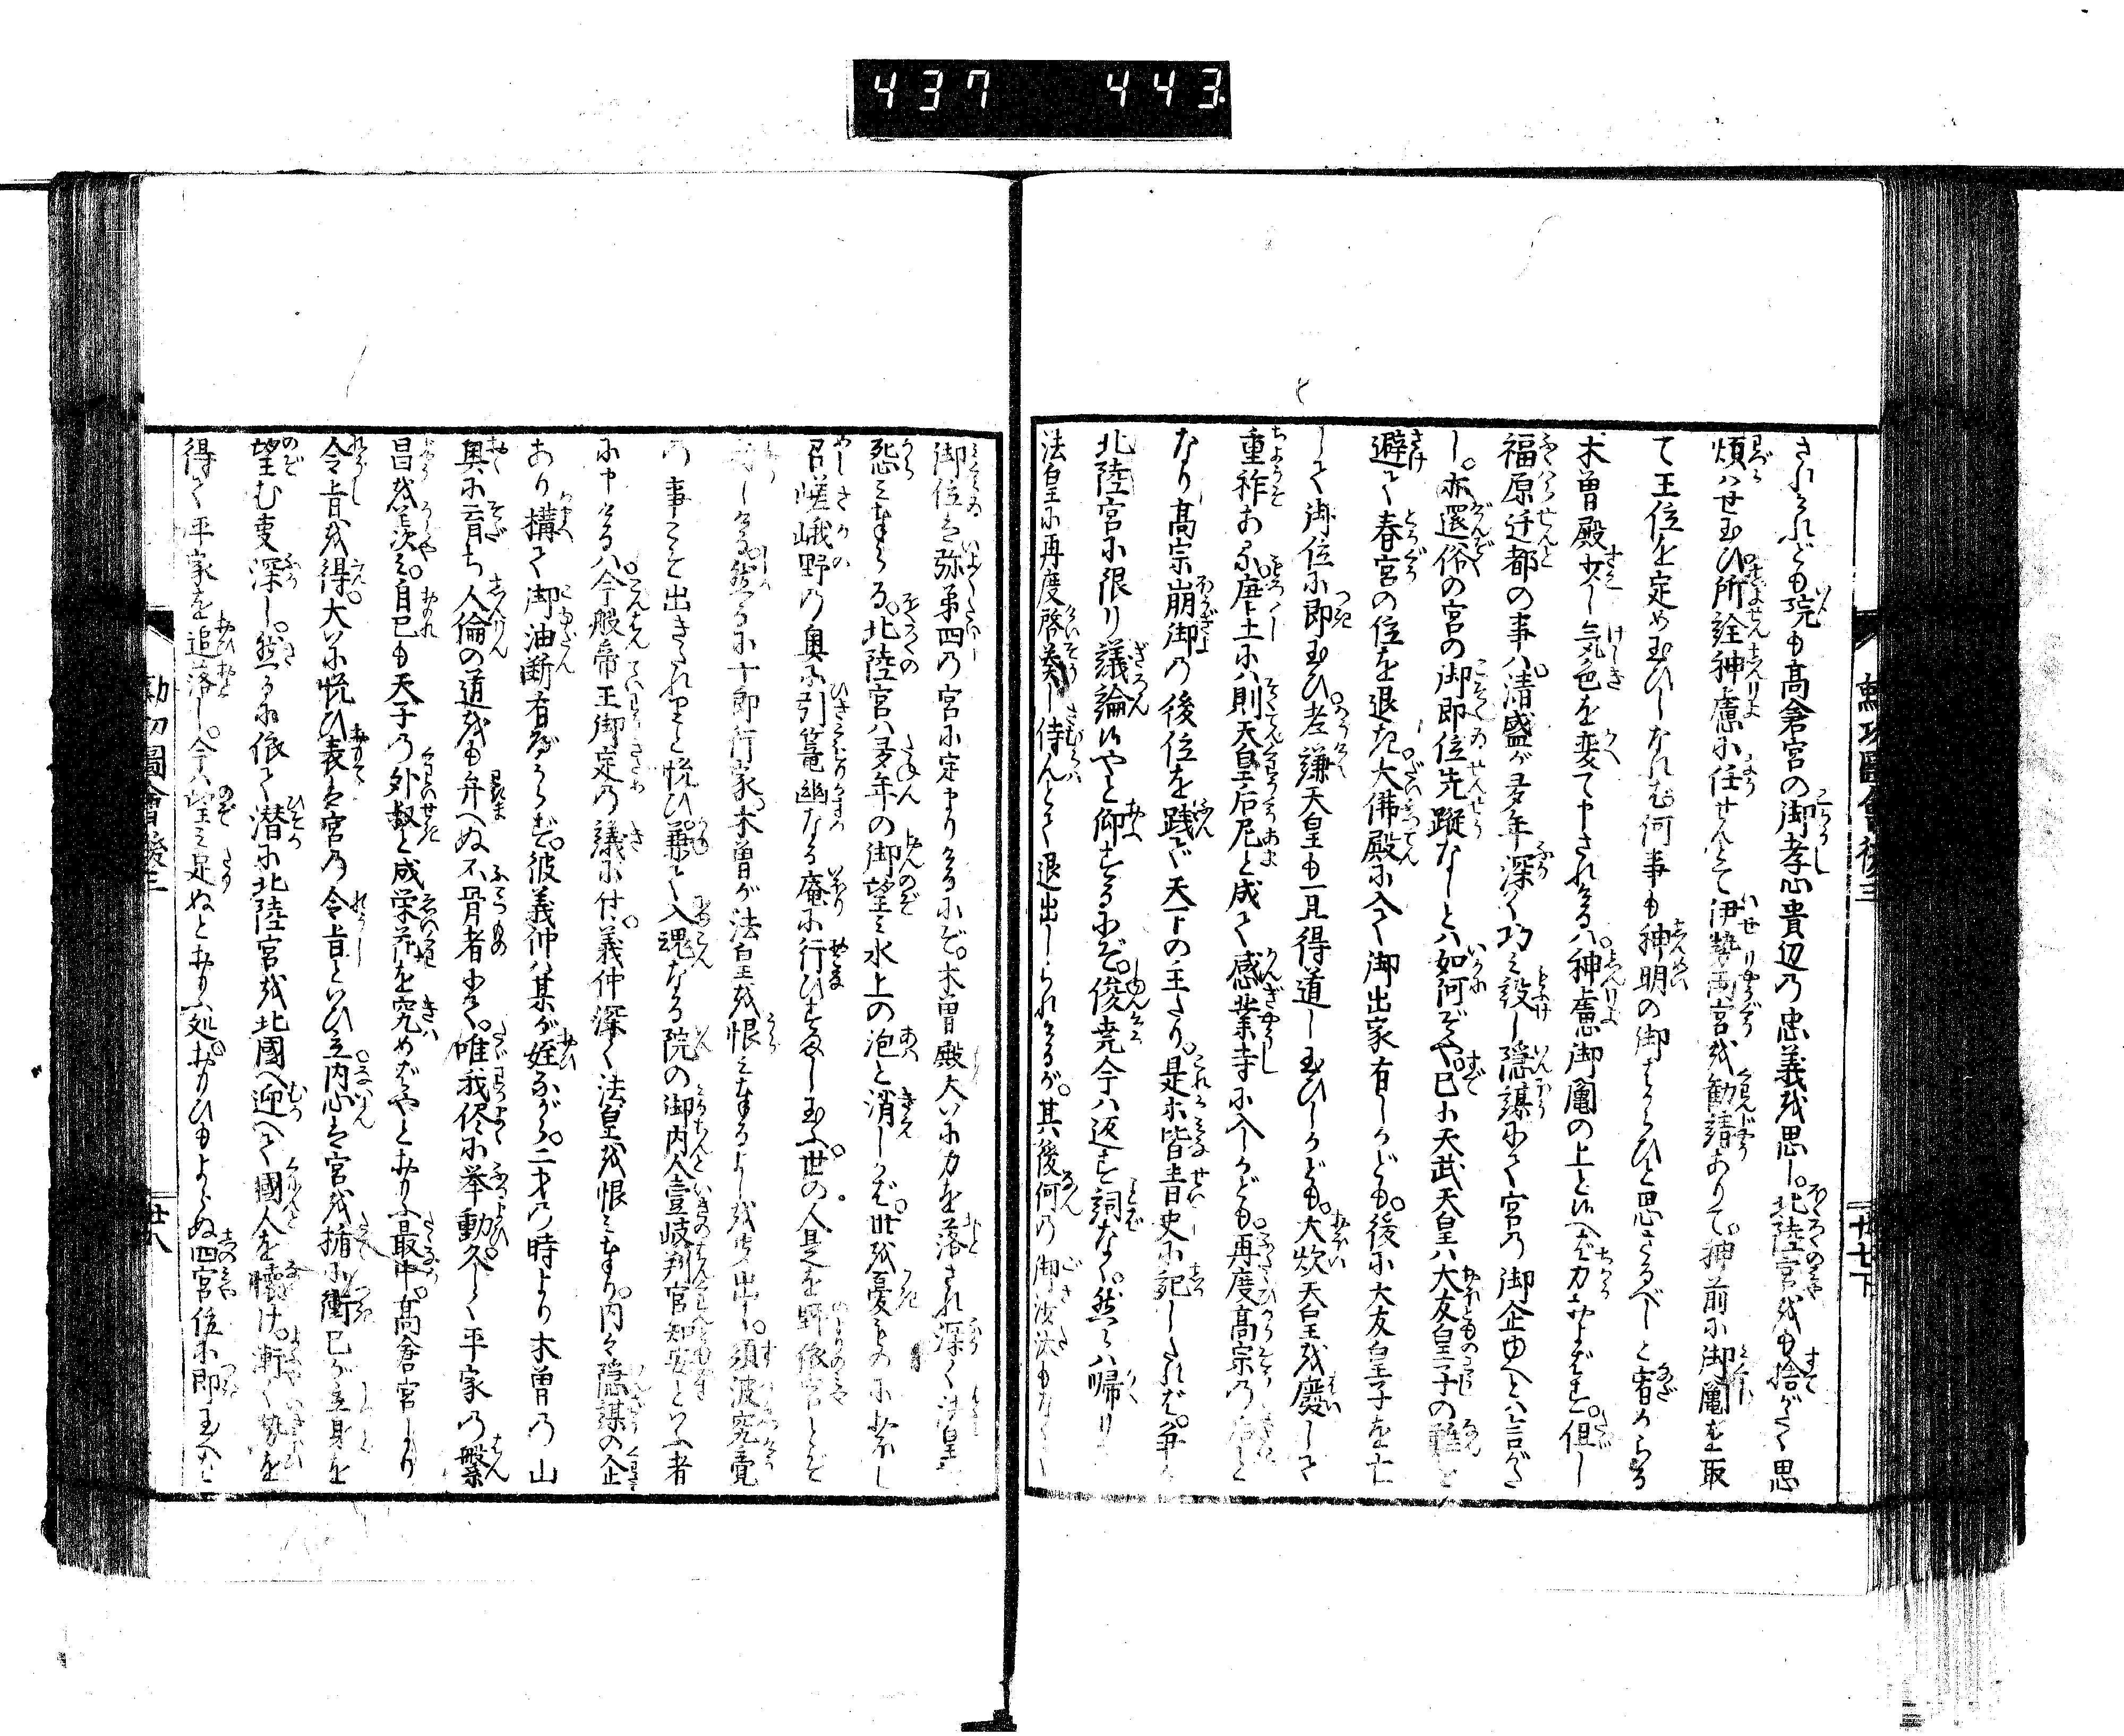 437 443
されども院も高倉宮の御孝心貴辺乃忠義を思し北陸宮をも捨がたく思
煩ハせ玉ひ所詮神慮に任せんとて伊勢両宮を勧請ありて。神前に御鬮を取
て王位を定め玉ひしなれば何事も神明の御はからひと思さるべしと宥めらる
木曽殿少し気色を変て申されけるハ。神慮御鬮の上とハいへど力およばず。但し
福原迁都の事ハ清盛が多年深く巧み設し隠謀にて宮乃御企ゆへとハ言がた
し。亦還俗の宮の御即位先蹤なしとハ如何ぞや已に天武天皇ハ大友皇子の難を
避て春宮の位を退き。大佛殿に入て御出家有しかども。後に大友皇子を亡
して御位に即玉ひ。孝謙天皇も一旦得道し玉ひしかども。大炊天皇を廢して
重祚ある。唐土にハ則天皇后尼と成て感業寺に入しかども。再度高宗乃后と
なり高宗崩御乃後位を践で天下の主たり。是に皆青史に記したれバ。争か
北陸宮に限り議論候やと仰せけるにぞ。俊尭今ハ返す詞なく。然らハ帰り
法皇に再度啓奏し侍んとて退出しられけるが。其後何乃御沙汰もなく
御位ハ弥第四乃宮に定まりけるにぞ。木曽殿大いに力を落され深く法皇
怨み奉らる。北陸宮ハ多年の御望み水上の泡と消しかバ。世を憂ものに思
召嵯峨野乃奥に引篭幽なる庵に行ひすまし玉ふ。世の人是を野依宮とぞ
申しける。然るに十郎行家。木曽が法皇を恨み奉るよしを聞出し。須波究竟
乃事こそ出きたれやと悦び。兼て入魂なる院の御内人壹岐判官知康といふ者
に申けるハ。今般帝王御定乃議に付。義仲深く法皇を恨み奉り。内々隠謀の企
あり構て御油断有べからず。彼義仲ハ某が姪ながら。二才乃時より木曽乃山
奥に育ち人倫の道をも弁へぬ不骨者にて。唯我侭に挙動久しく平家乃繁
昌を羨み。自己も天子乃外叔と成栄花を究めばやとおもふ最中。高倉宮より
令旨を得。大いに悦び表ハ宮乃令旨といひ立。内心ハ宮を楯に衝己が立身を
望む事深し。然るに依て潜に北陸宮を北國へ迎へて國人を懐け。漸く勢を
得て平家を追落し。今ハ望み足ぬとおもふ処。おもひもよらぬ四宮位に即玉へば
勲功圖會後三
廿七下
廿八